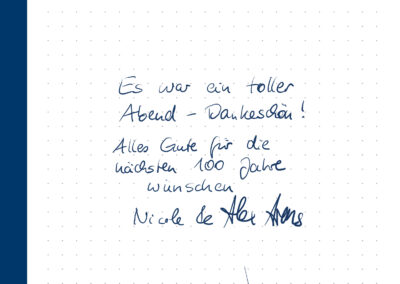 Es war ein toller
Abend - Dankeschön!
Alles Gute für die
nächsten 100 Jahre
wünschen
Nicole & Alex Arens